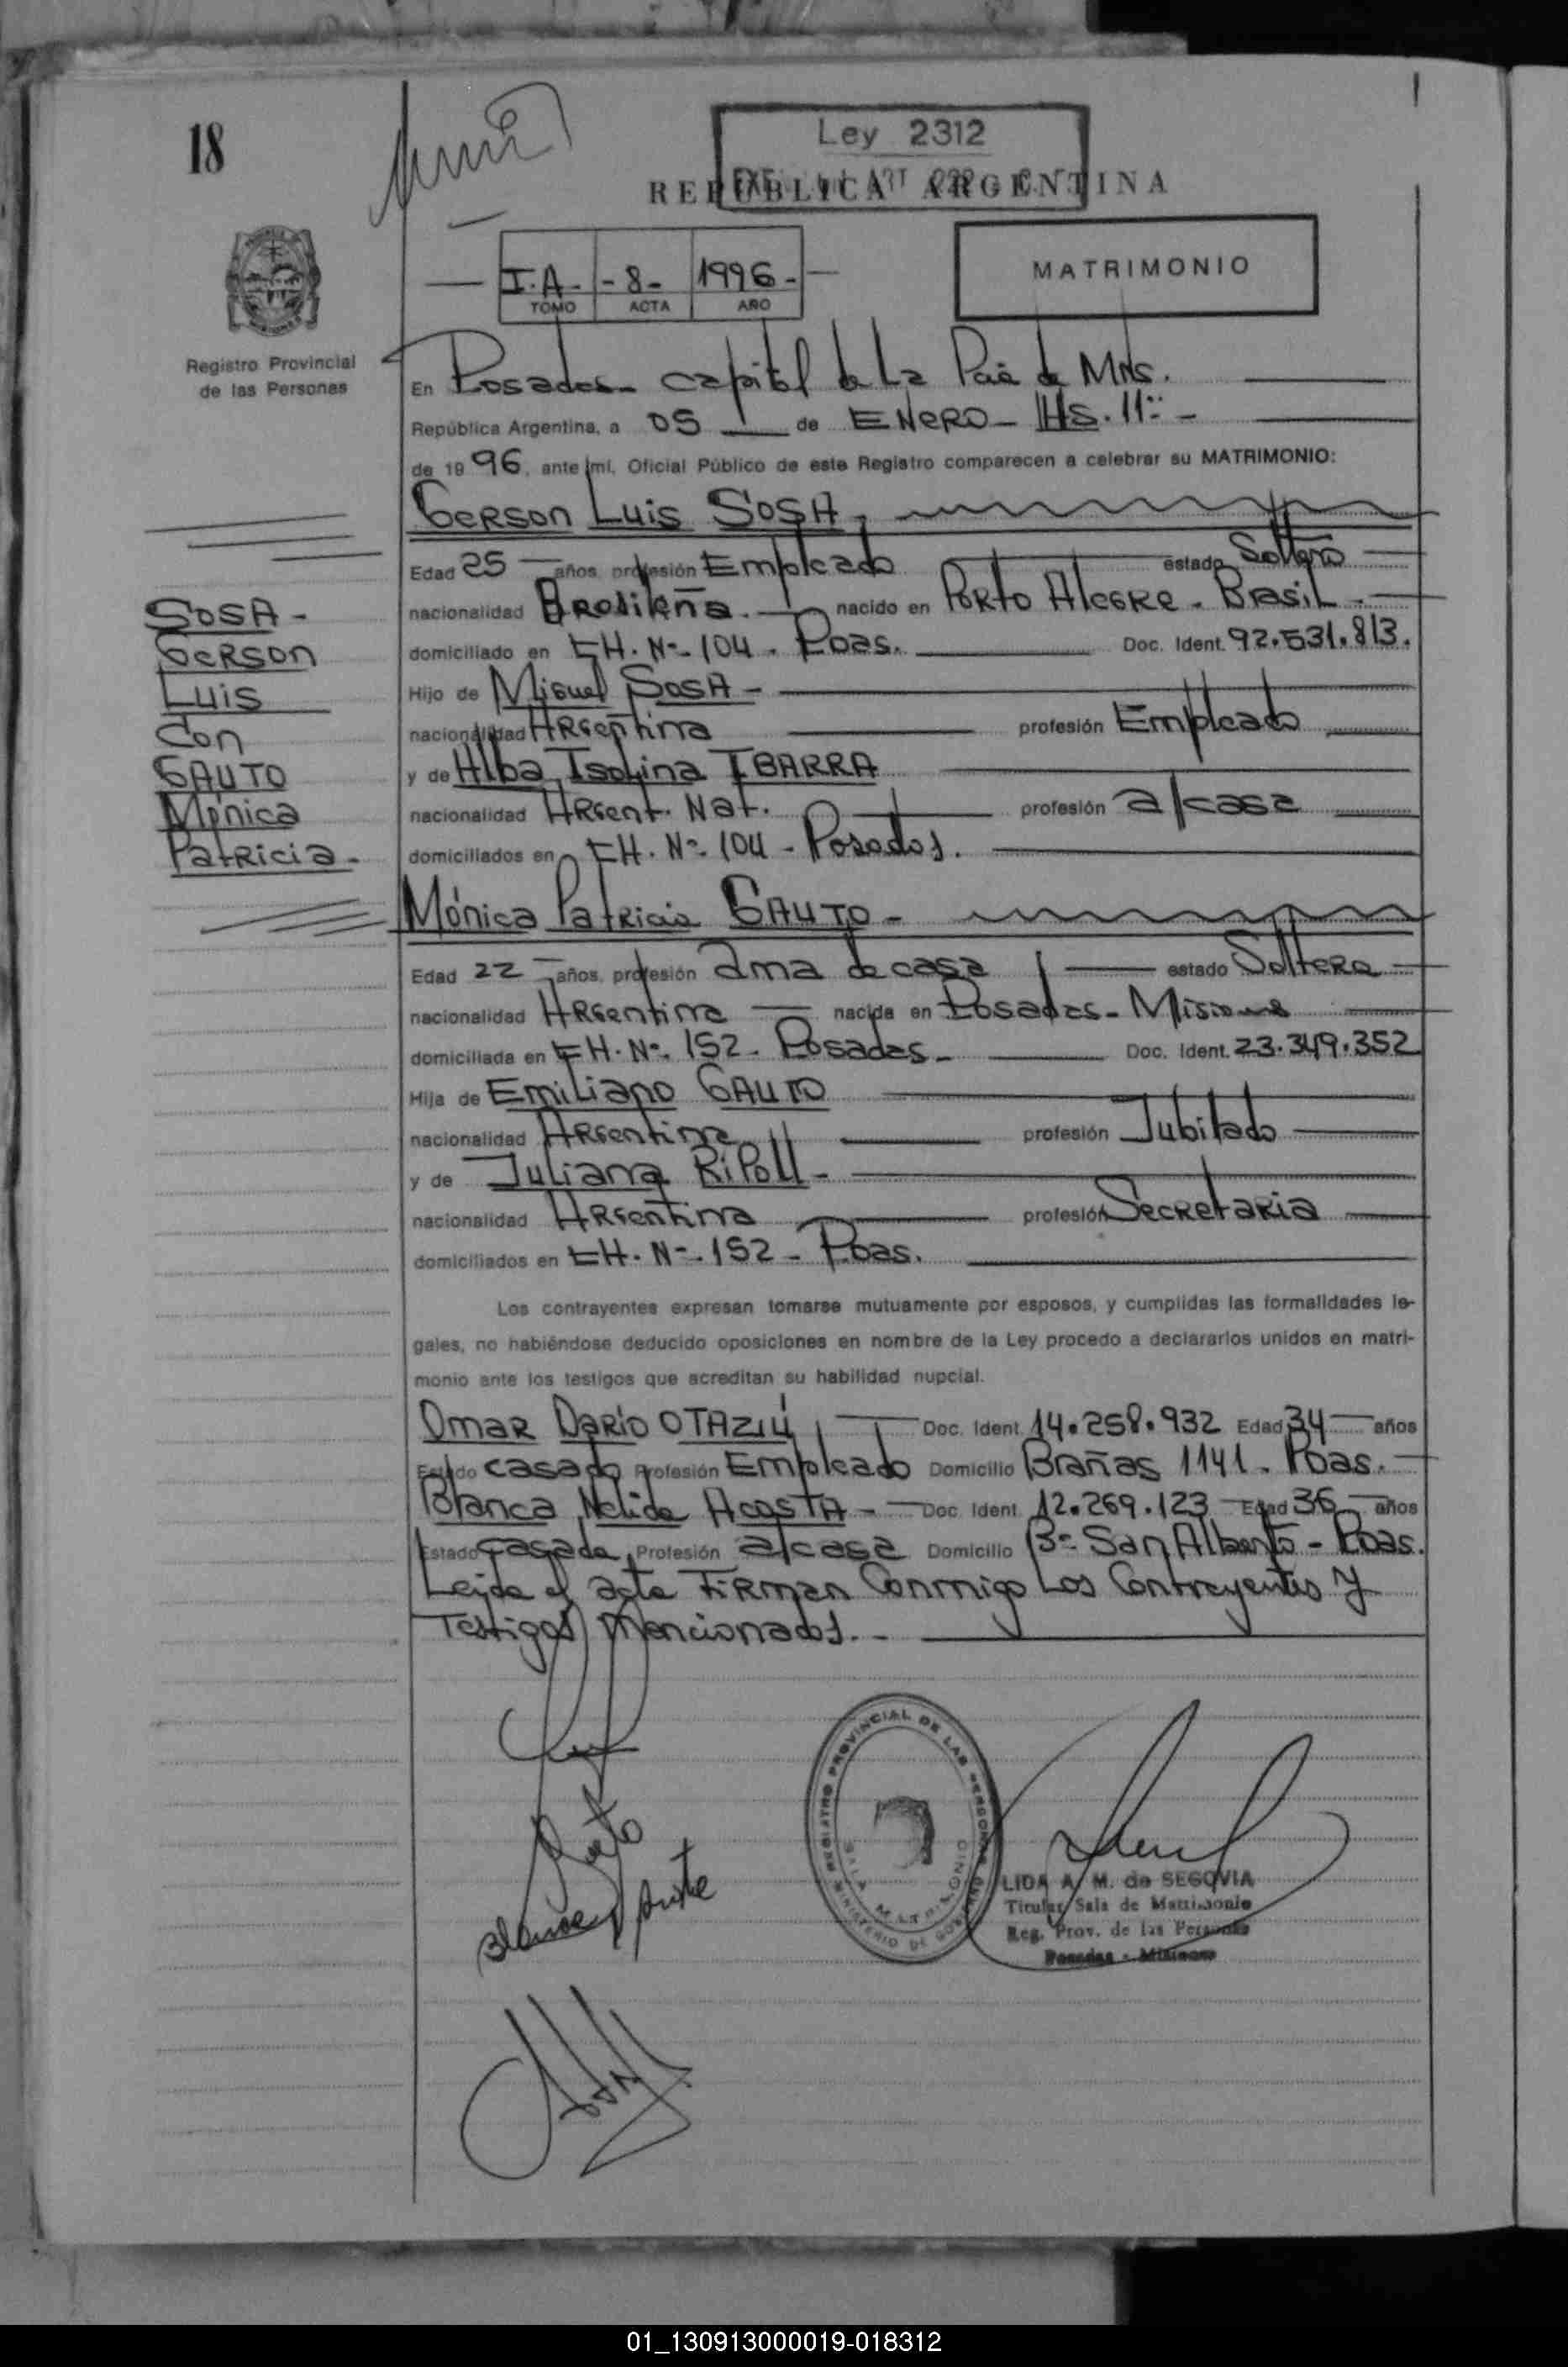 18
Ley 2312
REPUBLICA ARGENTINA
I.A - - 8 - 1996 -
TOMO ACTA AÑO
MATRIMONIO
Registro Provincial
de las Personas
En Posadas - capital de La Pcia de Mnes.
República Argentina, a 05 de ENERO - Hs. 11:-
de 1996, ante mí, Oficial Público de este Registro comparecen a celebrar su MATRIMONIO:
Gerson Luis SOSA,
Edad 25 años, profesión Empleado estado Soltero
nacionalidad Brasileña. nacido en Porto Alegre - Brasil.
domiciliado en CH. Nº 104 - Pdas. Doc. Ident. 92.531.813.
Hijo de Miguel SOSA -
nacionalidad Argentina profesión Empleado
y de Alba Isolina IBARRA
nacionalidad Argent. Nat. profesión a/casa
domiciliados en CH. Nº 104 - Posadas.
SOSA -
Gerson
Luis
Con
GAUTO
Mónica
Patricia -
Mónica Patricia GAUTO -
Edad 22 años, profesión ama de casa estado Soltera
nacionalidad Argentina nacida en Posadas - Misiones
domiciliada en CH. Nº 152 - Posadas - Doc. Ident. 23.349.352
Hija de Emiliano GAUTO
nacionalidad Argentina profesión Jubilado
y de Juliana Ripoll -
nacionalidad Argentina profesión Secretaria
domiciliados en CH. Nº 152 - Pdas.
Los contrayentes expresan tomarse mutuamente por esposos, y cumplidas las formalidades le-
gales, no habiéndose deducido oposiciones en nombre de la Ley procedo a declararlos unidos en matri-
monio ante los testigos que acreditan su habilidad nupcial.
Omar Darío OTAZÚ, Doc. Ident. 14.258.932 Edad 34 años
Estado casado Profesión Empleado Domicilio Brañas 1141 - Pdas.
Blanca Nelida ACOSTA - Doc. Ident. 12.269.123 Edad 36 años
Estado casada, Profesión a/casa Domicilio Bº San Alberto - Pdas.
Leída el acta Firman Conmigo Los Contrayentes y
Testigos mencionados. -
REGISTRO PROVINCIAL DE LAS PERSONAS
SALA MATRIMONIO
MINISTERIO DE GOBIERNO
LIDA A. M. de SEGOVIA
Titular Sala de Matrimonio
Reg. Prov. de las Personas
Posadas - Misiones
01_130913000019-018312